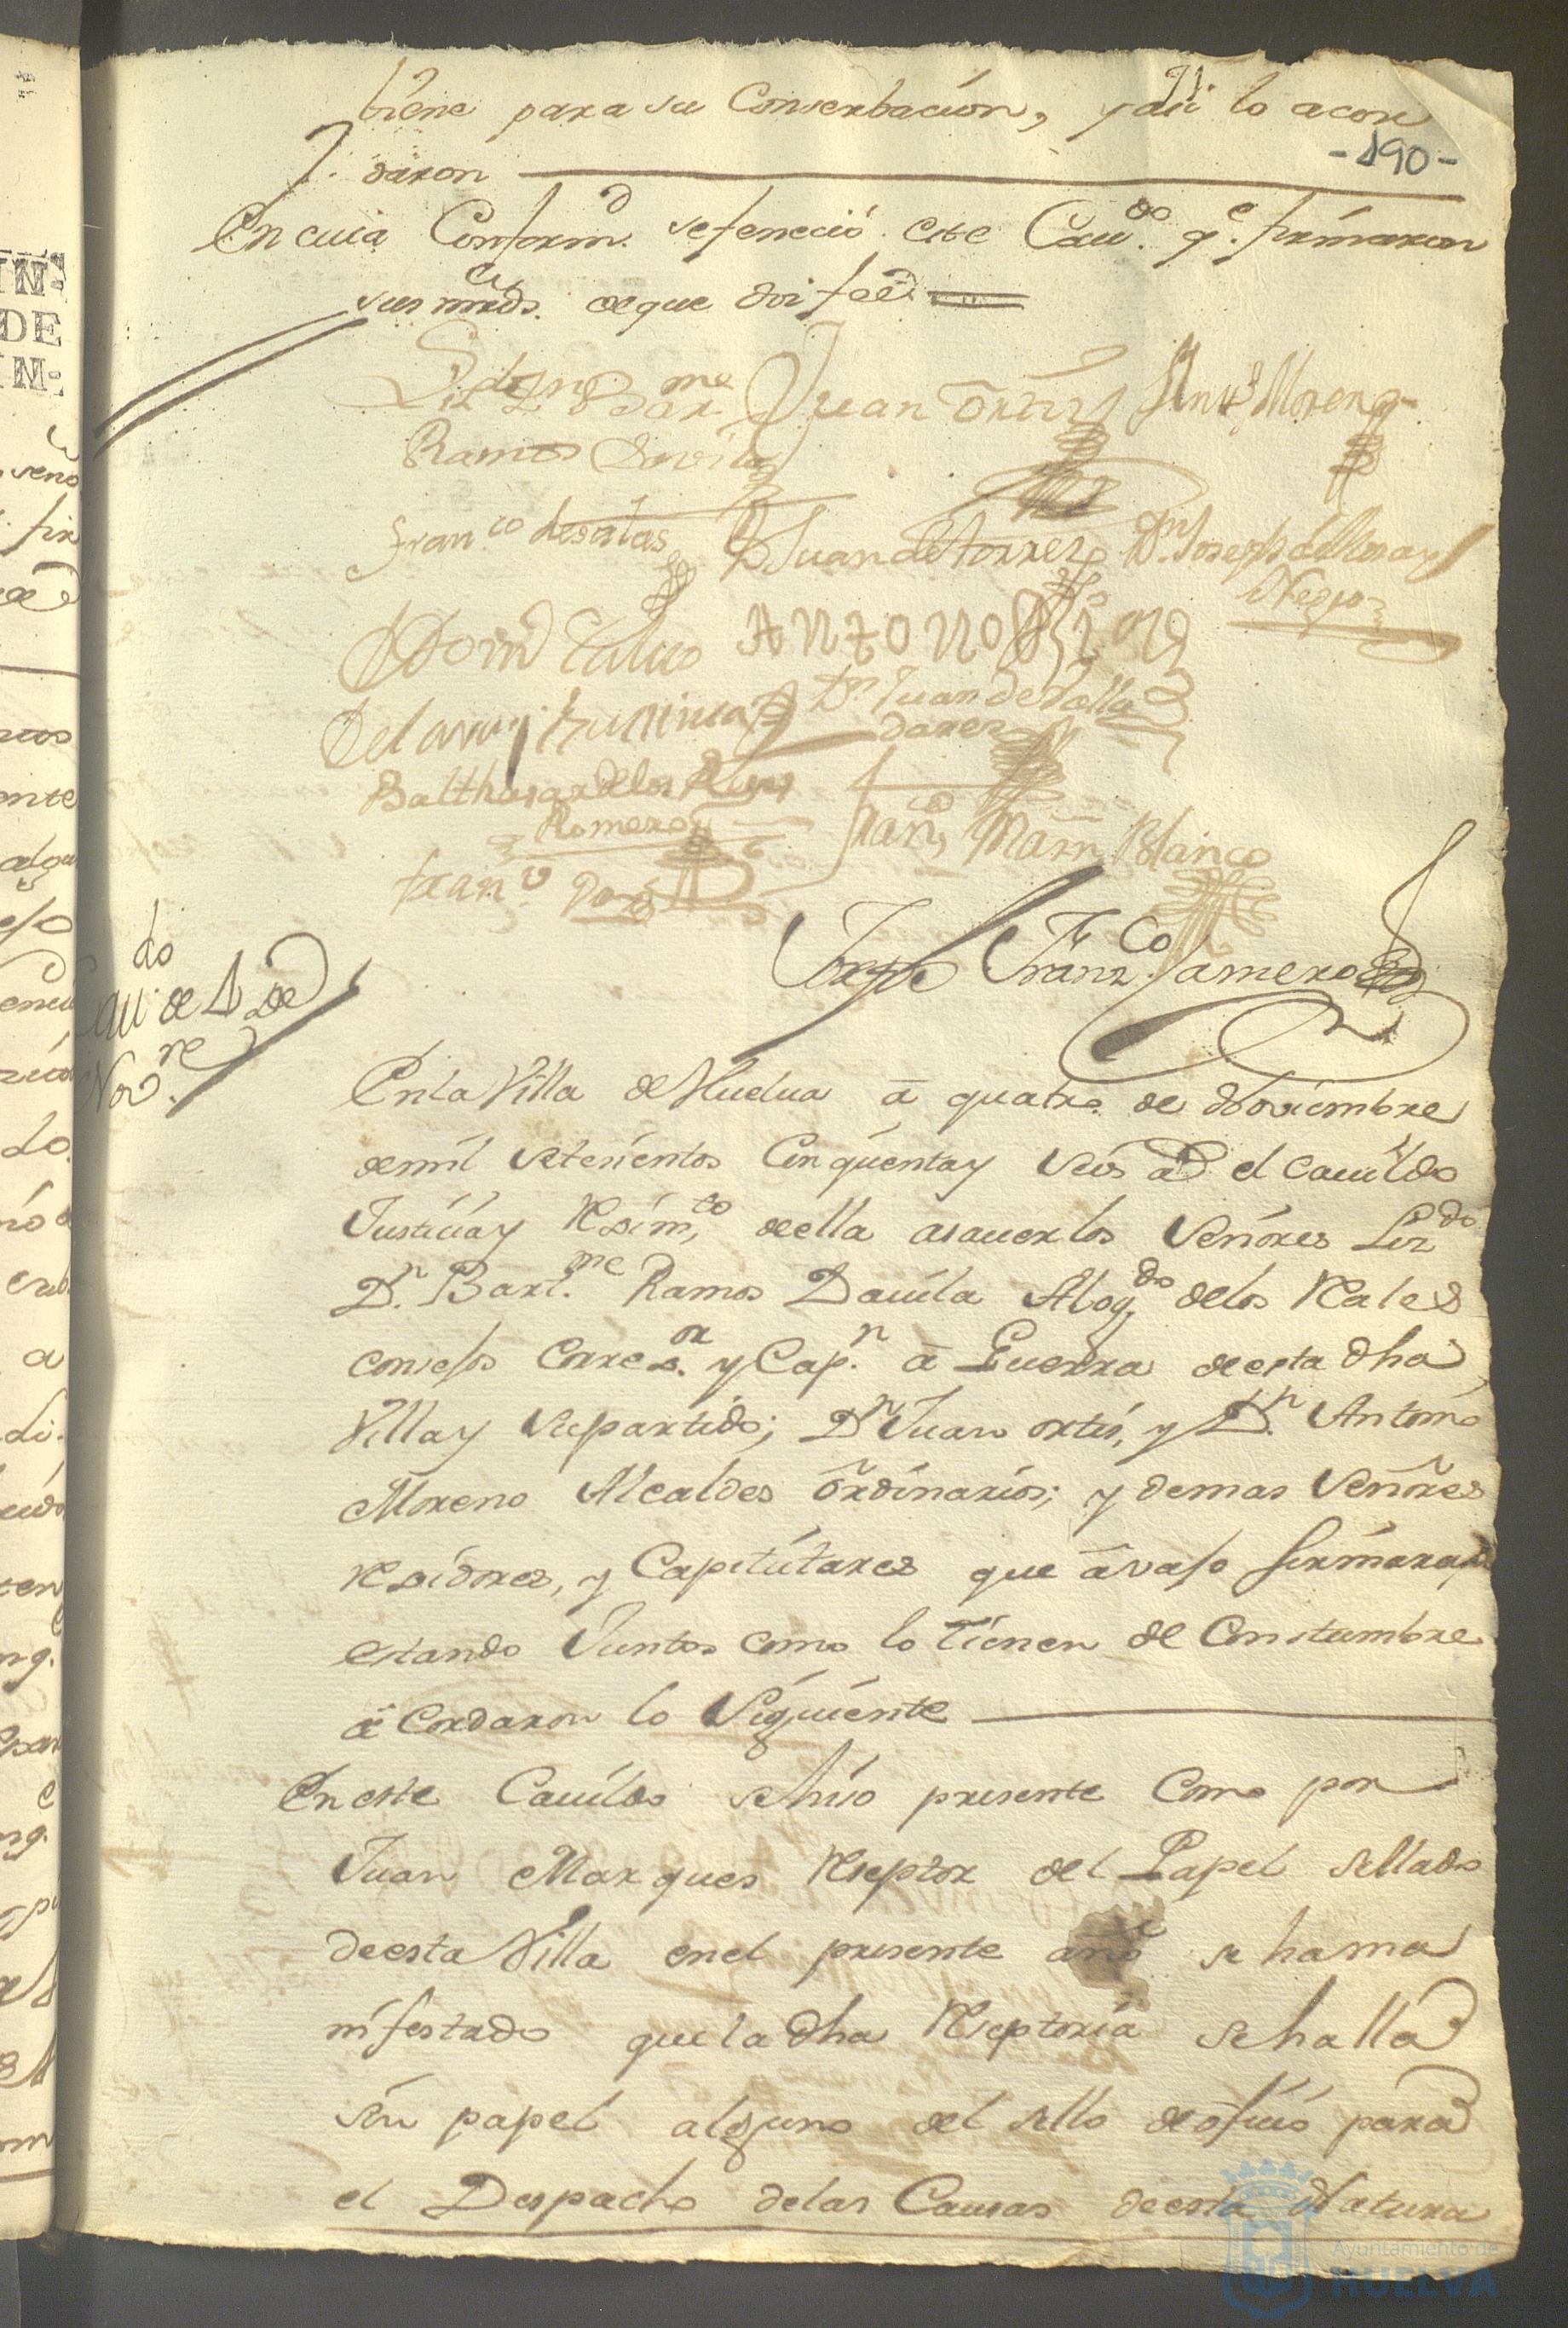 tiene para su Conserbacion, y asi lo acor
daron
-190-
En cuia Conformd. se feneció este Caudo. qe. firmaron
sus mrds. de que doi fee
Lizdo Dn Barme
Ramos Davila
Juan Ortiz
Anto Moreno
Franco de salas
Dn Juan de torres
Dn Joseph de Rosa y
Negro
Antonio
Dn Juan de Valla
dares
Balthasar de los Reyes
Romero
Franco Marn Blanco
Franco
Jorge Franzco Jamero
Caudo de 4 de
Novre.
En la Villa de Huelua â quatro de Noviembre
de mil setesientos Cinquenta y seis ad el cauildo
Justicia y Rexim,to de ella asauer los señores Lizdo
Dn. Bartme. Ramos Dauila Abogdo de los Rales
consejos Corregor. y Capn. â Guerra de esta dha
Villa y su partido; Dn Juan ortis, y Dn. Antonio
Moreno Alcaldes ôrdinarios; y demas señores
Rexidores, y Capitulares que âvajo firmaran
estando Juntos como lo tienen de Constumbre
â Cordaron lo siguiente
En este Cauildo se hiso presente Como por
Juan Marques Rseptor del Papel sellado
de esta Villa en el presente año se ha ma
nifestado que la dha Rseptoria se halla
sin papel alguno del sello de ôficio para
el Despacho de las Causas de esta Natura
Ayuntamiento de
HUELVA